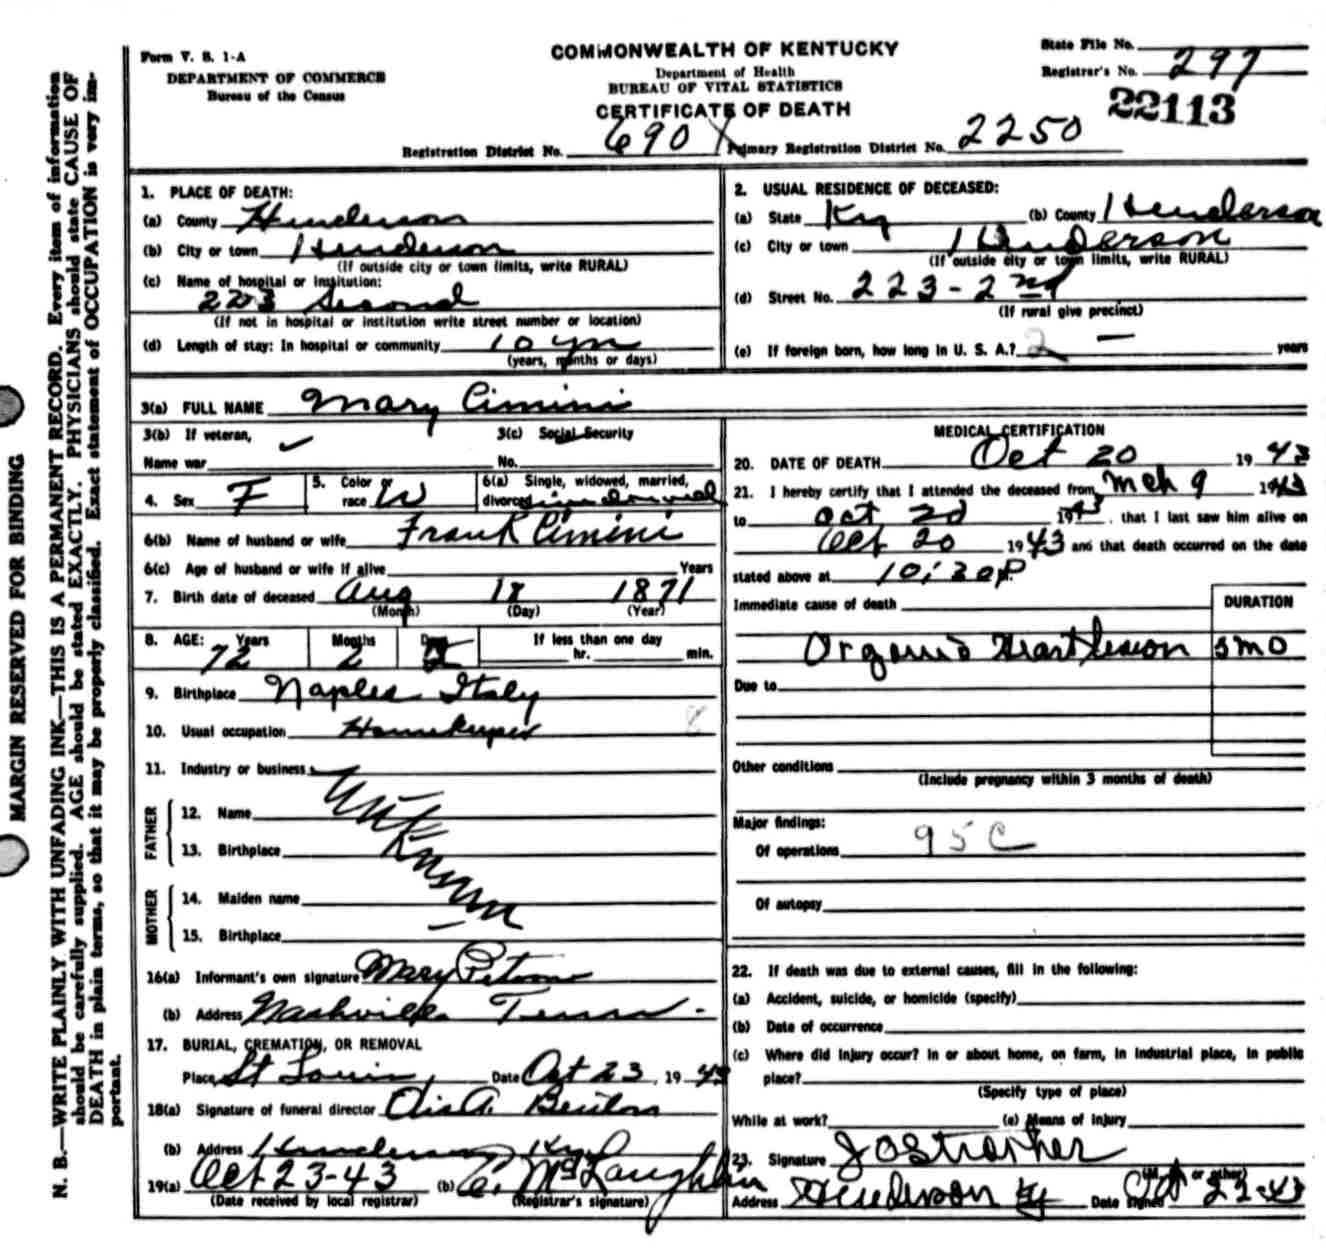 MARGIN RESERVED FOR BINDING
N. B.—WRITE PLAINLY WITH UNFADING INK—THIS IS A PERMANENT RECORD. Every item of information
should be carefully supplied. AGE should be stated EXACTLY. PHYSICIANS should state CAUSE OF
DEATH in plain terms, so that it may be properly classified. Exact statement of OCCUPATION is very im-
portant.
Form V. S. 1-A
DEPARTMENT OF COMMERCE
Bureau of the Census
COMMONWEALTH OF KENTUCKY
Department of Health
BUREAU OF VITAL STATISTICS
CERTIFICATE OF DEATH
State File No.
Registrar's No. 297
22113
Registration District No. 690 X Primary Registration District No. 2250
1. PLACE OF DEATH:
(a) County Henderson
(b) City or town Henderson
(If outside city or town limits, write RURAL)
(c) Name of hospital or institution:
223 Second
(If not in hospital or institution write street number or location)
(d) Length of stay: In hospital or community 10 yrs
(years, months or days)
2. USUAL RESIDENCE OF DECEASED:
(a) State Ky (b) County Henderson
(c) City or town Henderson
(If outside city or town limits, write RURAL)
(d) Street No. 223-2nd
(If rural give precinct)
(e) If foreign born, how long in U. S. A.? 2 — years
3(a) FULL NAME Mary Cimini
3(b) If veteran,
Name war
3(c) Social Security
No.
4. Sex F
5. Color or
race W
6(a) Single, widowed, married,
divorced
6(b) Name of husband or wife Frank Cimini
6(c) Age of husband or wife if alive Years
7. Birth date of deceased Aug 18 1871
(Month) (Day) (Year)
8. AGE: Years Months Days If less than one day
72 2 2 hr. min.
9. Birthplace Naples Italy
10. Usual occupation Housekeeper 8
11. Industry or business
FATHER
12. Name
13. Birthplace
MOTHER
14. Maiden name
15. Birthplace
Unknown
16(a) Informant's own signature Mary
(b) Address Nashville Tenn -
17. BURIAL, CREMATION, OR REMOVAL
Place St Louis Date Oct 23, 19 43
18(a) Signature of funeral director A. Benton
(b) Address Henderson Ky
19(a) Oct 23-43 (b) C. McLaughlin
(Date received by local registrar) (Registrar's signature)
MEDICAL CERTIFICATION
20. DATE OF DEATH Oct 20 19 43
21. I hereby certify that I attended the deceased from Mch 9 1943
to Oct 20 1943, that I last saw him alive on
Oct 20 1943 and that death occurred on the date
stated above at 10:30 P.
Immediate cause of death DURATION
Organic Heart Lesion 5 mo
Due to
Other conditions
(Include pregnancy within 3 months of death)
Major findings:
Of operations 95C
Of autopsy
22. If death was due to external causes, fill in the following:
(a) Accident, suicide, or homicide (specify)
(b) Date of occurrence
(c) Where did injury occur? In or about home, on farm, in industrial place, in public
place?
(Specify type of place)
While at work? (e) Means of injury
23. Signature J O Strother
(M. D. or other)
Address Henderson Ky Date signed Oct 23-43